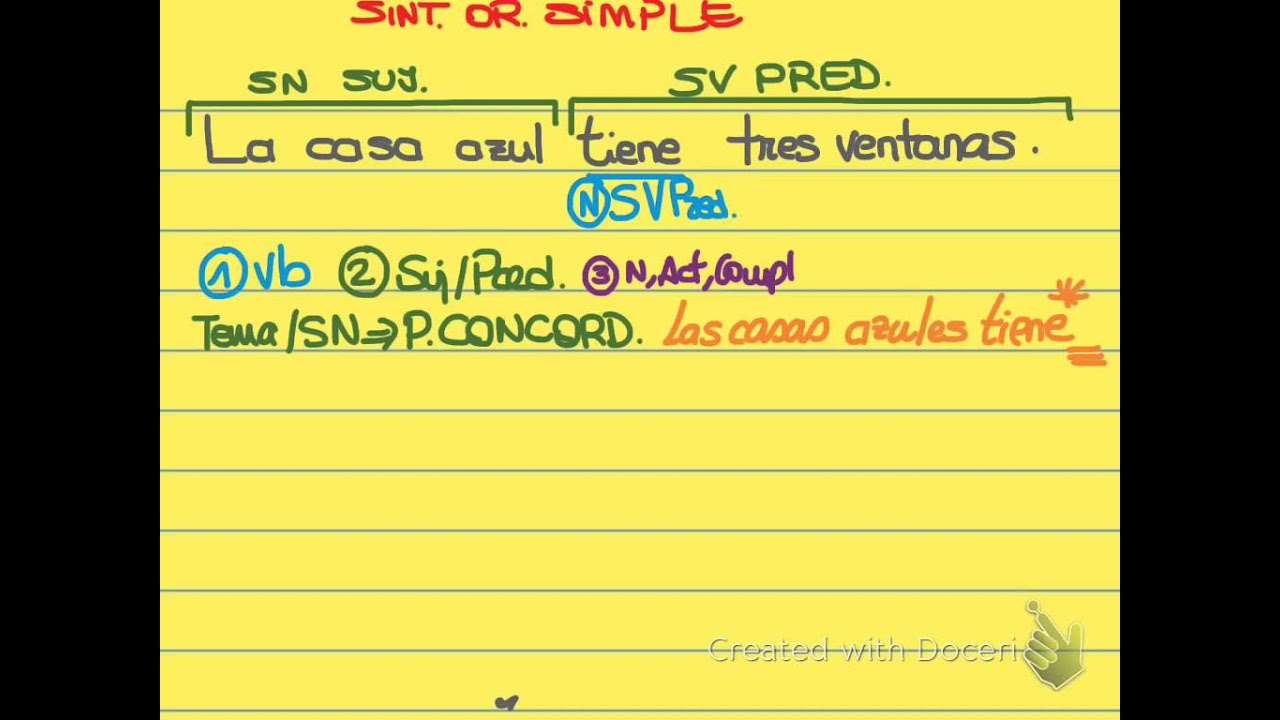 SINT. OR. SIMPLE
SN SUJ. SV PRED.
La casa azul tiene tres ventanas.
N SV Pred.
1 Vb 2 Suj/Pred. 3 N, Act, Compl
Tema/SN ⇒ P. CONCORD. Las casas azules tiene*
Created with Doceri